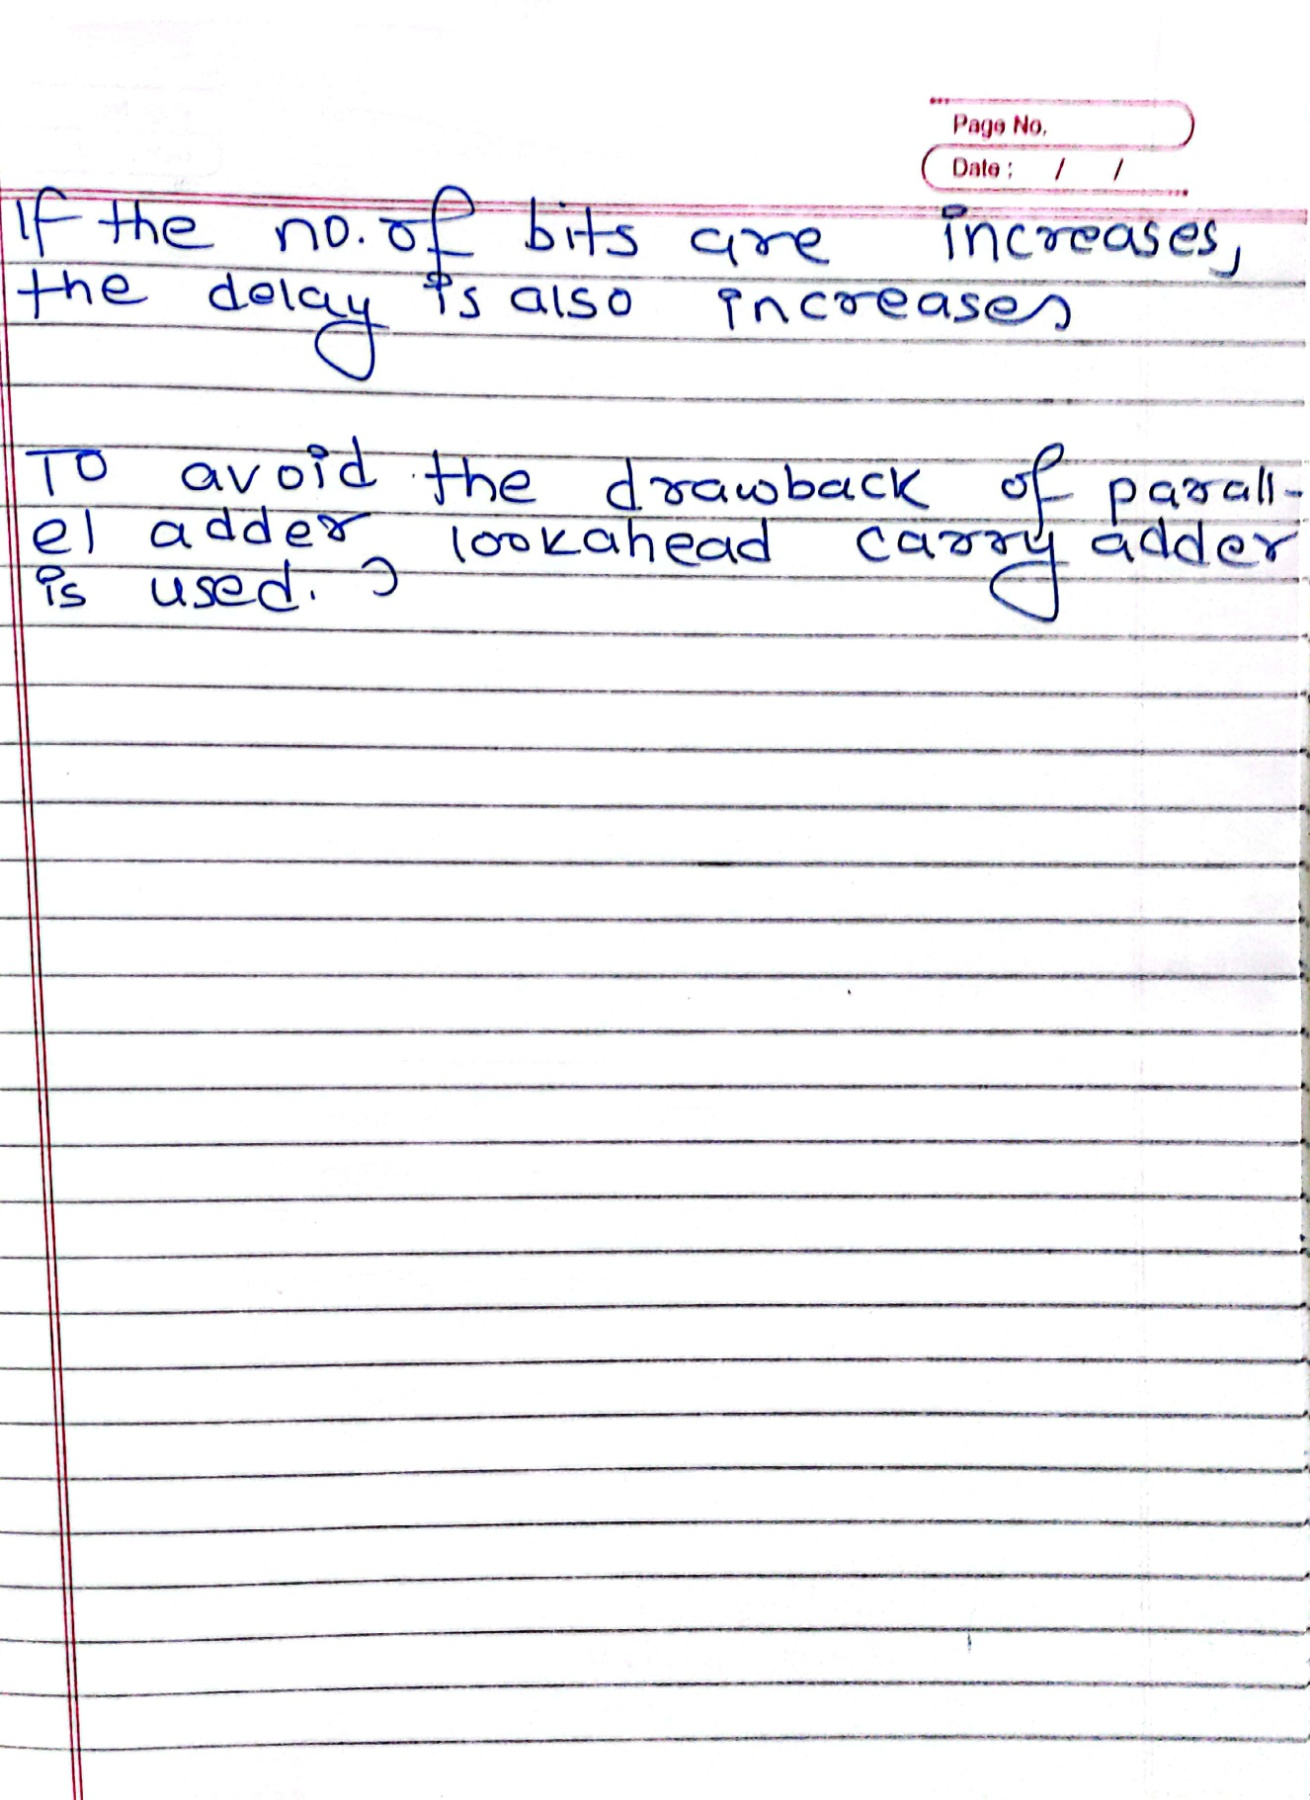 Page No.
Date : / /
If the no. of bits are increases,
the delay is also increases
To avoid the drawback of parall-
el adder, lookahead carry adder
is used.